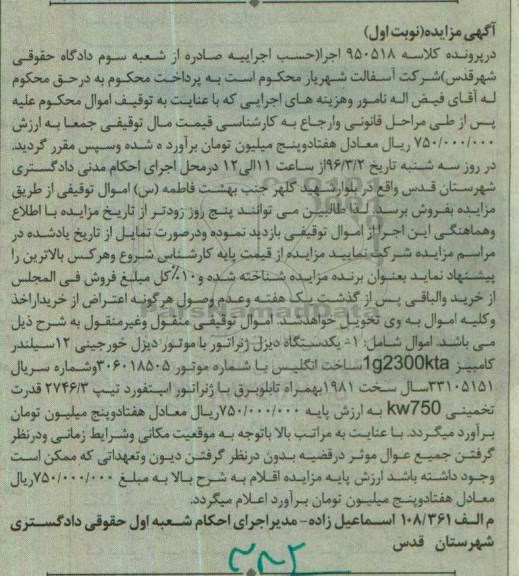 آگهی مزایده(نوبت اول)
درپرونده کلاسه ۹۵۰۵۱۸ اجرا(حسب اجراییه صادره از شعبه سوم دادگاه حقوقی
شهرقدس)شرکت آسفالت شهریار محکوم است به پرداخت محکوم به درحق محکوم
له آقای فیض اله نامور وهزینه های اجرایی که با عنایت به توقیف اموال محکوم علیه
پس از طی مراحل قانونی وارجاع به کارشناسی قیمت مال توقیفی جمعا به ارزش
۷۵۰/۰۰۰/۰۰۰ ریال معادل هفتادوپنج میلیون تومان برآورد ه شده وسپس مقرر گردید
در روز سه شنبه تاریخ ۹۶/۳/۲از ساعت ۱۱الی۱۲ درمحل اجرای احکام مدنی دادگستری
شهرستان قدس واقع در بلوارشهید کلهر جنب بهشت فاطمه (س) اموال توقیفی از طریق
مزایده بفروش برسد. لذا طالبین می توانند پنج روز زودتر از تاریخ مزایده با اطلاع
وهماهنگی این اجرا از اموال توقیفی بازدید نموده ودرصورت تمایل از تاریخ یادشده در
مراسم مزایده شرکت نمایید مزایده از قیمت پایه کارشناس شروع وهرکس بالاترین را
پیشنهاد نماید بعنوان برنده مزایده شناخته شده و۱۰٪کل مبلغ فروش فی المجلس
از خرید والباقی پس از گذشت یک هفته وعدم وصول هرگونه اعتراض از خریداراخذ
وکلیه اموال به وی تحویل خواهدشد. اموال توقیفی منقول وغیرمنقول به شرح ذیل
می باشد. اموال شامل: ۱- یکدستگاه دیزل ژنراتور با موتور دیزل خورجینی ۱۲سیلندر
کامینز 1g2300ktaساخت انگلیس با شماره موتور ۳۰۶۰۱۸۵۰۵وشماره سریال
۳۳۱۰۵۱۵۱سال سخت ۱۹۸۱بهمراه تابلوبرق با ژنراتور استفورد تیپ ۲۷۴۶/۳ قدرت
تخمینی kw750 به ارزش پایه ۷۵۰/۰۰۰/۰۰۰ریال معادل هفتادوپنج میلیون تومان
برآورد میگردد. با عنایت به مراتب بالا باتوجه به موقعیت مکانی وشرایط زمانی ودرنظر
گرفتن جمیع عوال موثر درقضیه بدون درنظر گرفتن دیون وتعهداتی که ممکن است
وجود داشته باشد ارزش پایه مزایده اقلام به شرح بالا به مبلغ ۷۵۰/۰۰۰/۰۰۰ریال
معادل هفتادوپنج میلیون تومان برآورد اعلام میگردد.
م الف ۱۰۸/۳۶۱ اسماعیل زاده- مدیراجرای احکام شعبه اول حقوقی دادگستری
شهرستان قدس
ParsNamadData